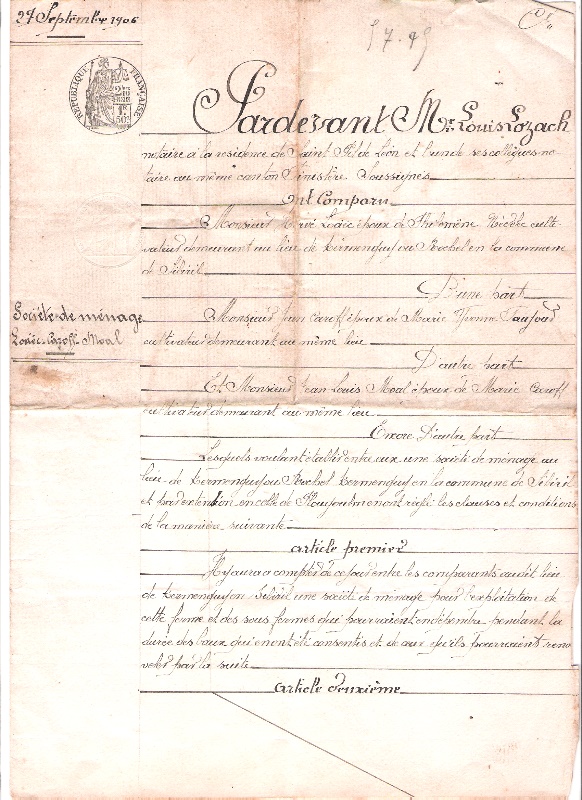 27 Septembre 1906
57.95
RÉPUBLIQUE FRANÇAISE
Pardevant Me Louis Lozach
notaire à la résidence de Saint Pol de Léon et l'un de ses collègues no-
taire au même canton Finistère Soussignés
Ont Comparu
Monsieur Hervé Loaëc époux de Philomène culti-
vateur demeurant au lieu de Kermenguy ou Rochel en la commune
de Sibiril
D'une part
Monsieur Jean Caroff époux de Marie
cultivateur demeurant au même lieu
D'autre part
Et Monsieur Jean Louis Moal époux de Marie Caroff
cultivateur demeurant au même lieu
Encore D'autre part
Société de ménage
Loaëc-Caroff-Moal
Lesquels voulant établir entre eux une société de ménage au
lieu de Kermenguy ou Rochel Kermenguy en la commune de Sibiril
et par extention en celle de ont réglé les clauses et conditions
de la manière suivante
article premier
Il y aura à compter de ce jour entre les comparants audit lieu
de Kermenguy en Sibiril une société de ménage pour l'exploitation de
cette ferme et des sous fermes qui pourraient en dépendre pendant la
durée des baux qui en ont été consentis et de ceux qu'ils pourraient renou
veler par la suite
article deuxième